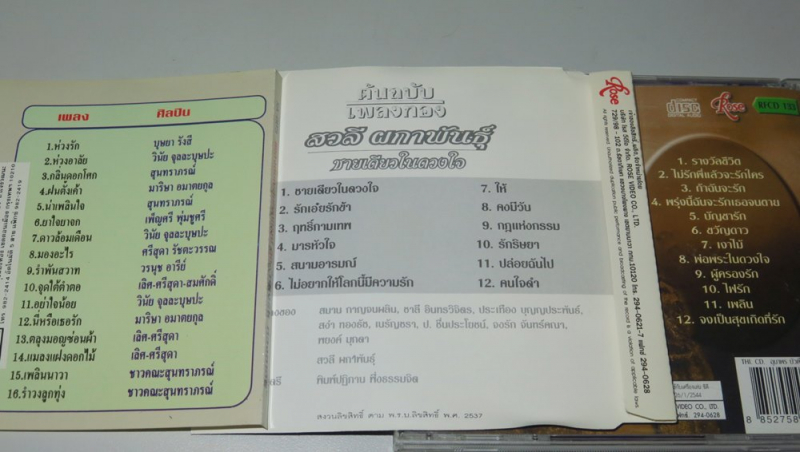 เพลง ศิลปิน
1.ห่วงรัก บุษยา รังสี
2.ห่วงอาลัย วินัย จุลละบุษปะ
3.กลิ่นดอกโศก สุนทราภรณ์
4.ฝนตั้งเค้า มาริษา อมาตยกุล
5.น่าเพลินใจ สุนทราภรณ์
6.ยาใจยาจก เพ็ญศรี พุ่มชูศรี
7.ดาวล้อมเดือน วินัย จุลละบุษปะ
8.มองอะไร ศรีสุดา รัชตะวรรณ
9.รำพันสวาท วรนุช อารีย์
10.จุดไต้ตำตอ เลิศ-ศรีสุดา-สมศักดิ์
11.อย่าใจน้อย วินัย จุลละบุษปะ
12.นี่หรือเธอรัก มาริษา อมาตยกุล
13.ตลุงมอญซ่อนผ้า เลิศ-ศรีสุดา
14.แมลงแฝงดอกไม้ เลิศ-ศรีสุดา
15.เพลินนาวา ชาวคณะสุนทราภรณ์
16.รำวงลูกทุ่ง ชาวคณะสุนทราภรณ์
ต้นฉบับ
เพลงทอง
สวลี ผกาพันธุ์
ชายเดียวในดวงใจ
1. ชายเดียวในดวงใจ
2. รักเอ๋ยรักข้า
3. ฤทธิ์กามเทพ
4. มารหัวใจ
5. สนามอารมณ์
6. ไม่อยากให้โลกนี้มีความรัก
7. ไห้
8. คงมีวัน
9. กฎแห่งกรรม
10. รักริษยา
11. ปล่อยฉันไป
12. คนใจดำ
สมาน กาญจนผลิน, ชาลี อินทรวิจิตร, ประเทือง บุญญประพันธ์,
สง่า ทองธัช, เนรัญชรา, ป. ชื่นประโยชน์, จงรัก จันทร์คณา,
พยงค์ มุกดา
สวลี ผกาพันธุ์
พิมพ์ปฏิภาณ พึ่งธรรมจิต
สงวนลิขสิทธิ์ ตาม พ.ร.บ.ลิขสิทธิ์ พ.ศ. 2537
Rose
ROSE VIDEO CO., LTD.
Rose
RFCD 132
1. รางวัลชีวิต
2. ไม่รักพี่แล้วจะรักใคร
3. ถ้าฉันจะรัก
4. พรุ่งนี้ฉันจะรักเธอจนตาย
5. บัญชารัก
6. ขวัญดาว
7. เงาไม้
8. พ่อพระในดวงใจ
9. ผู้ครองรัก
10. ไฟรัก
11. เพลิน
12. จงเป็นสุขเถิดที่รัก
VIDEO CO., LTD.
294-0628